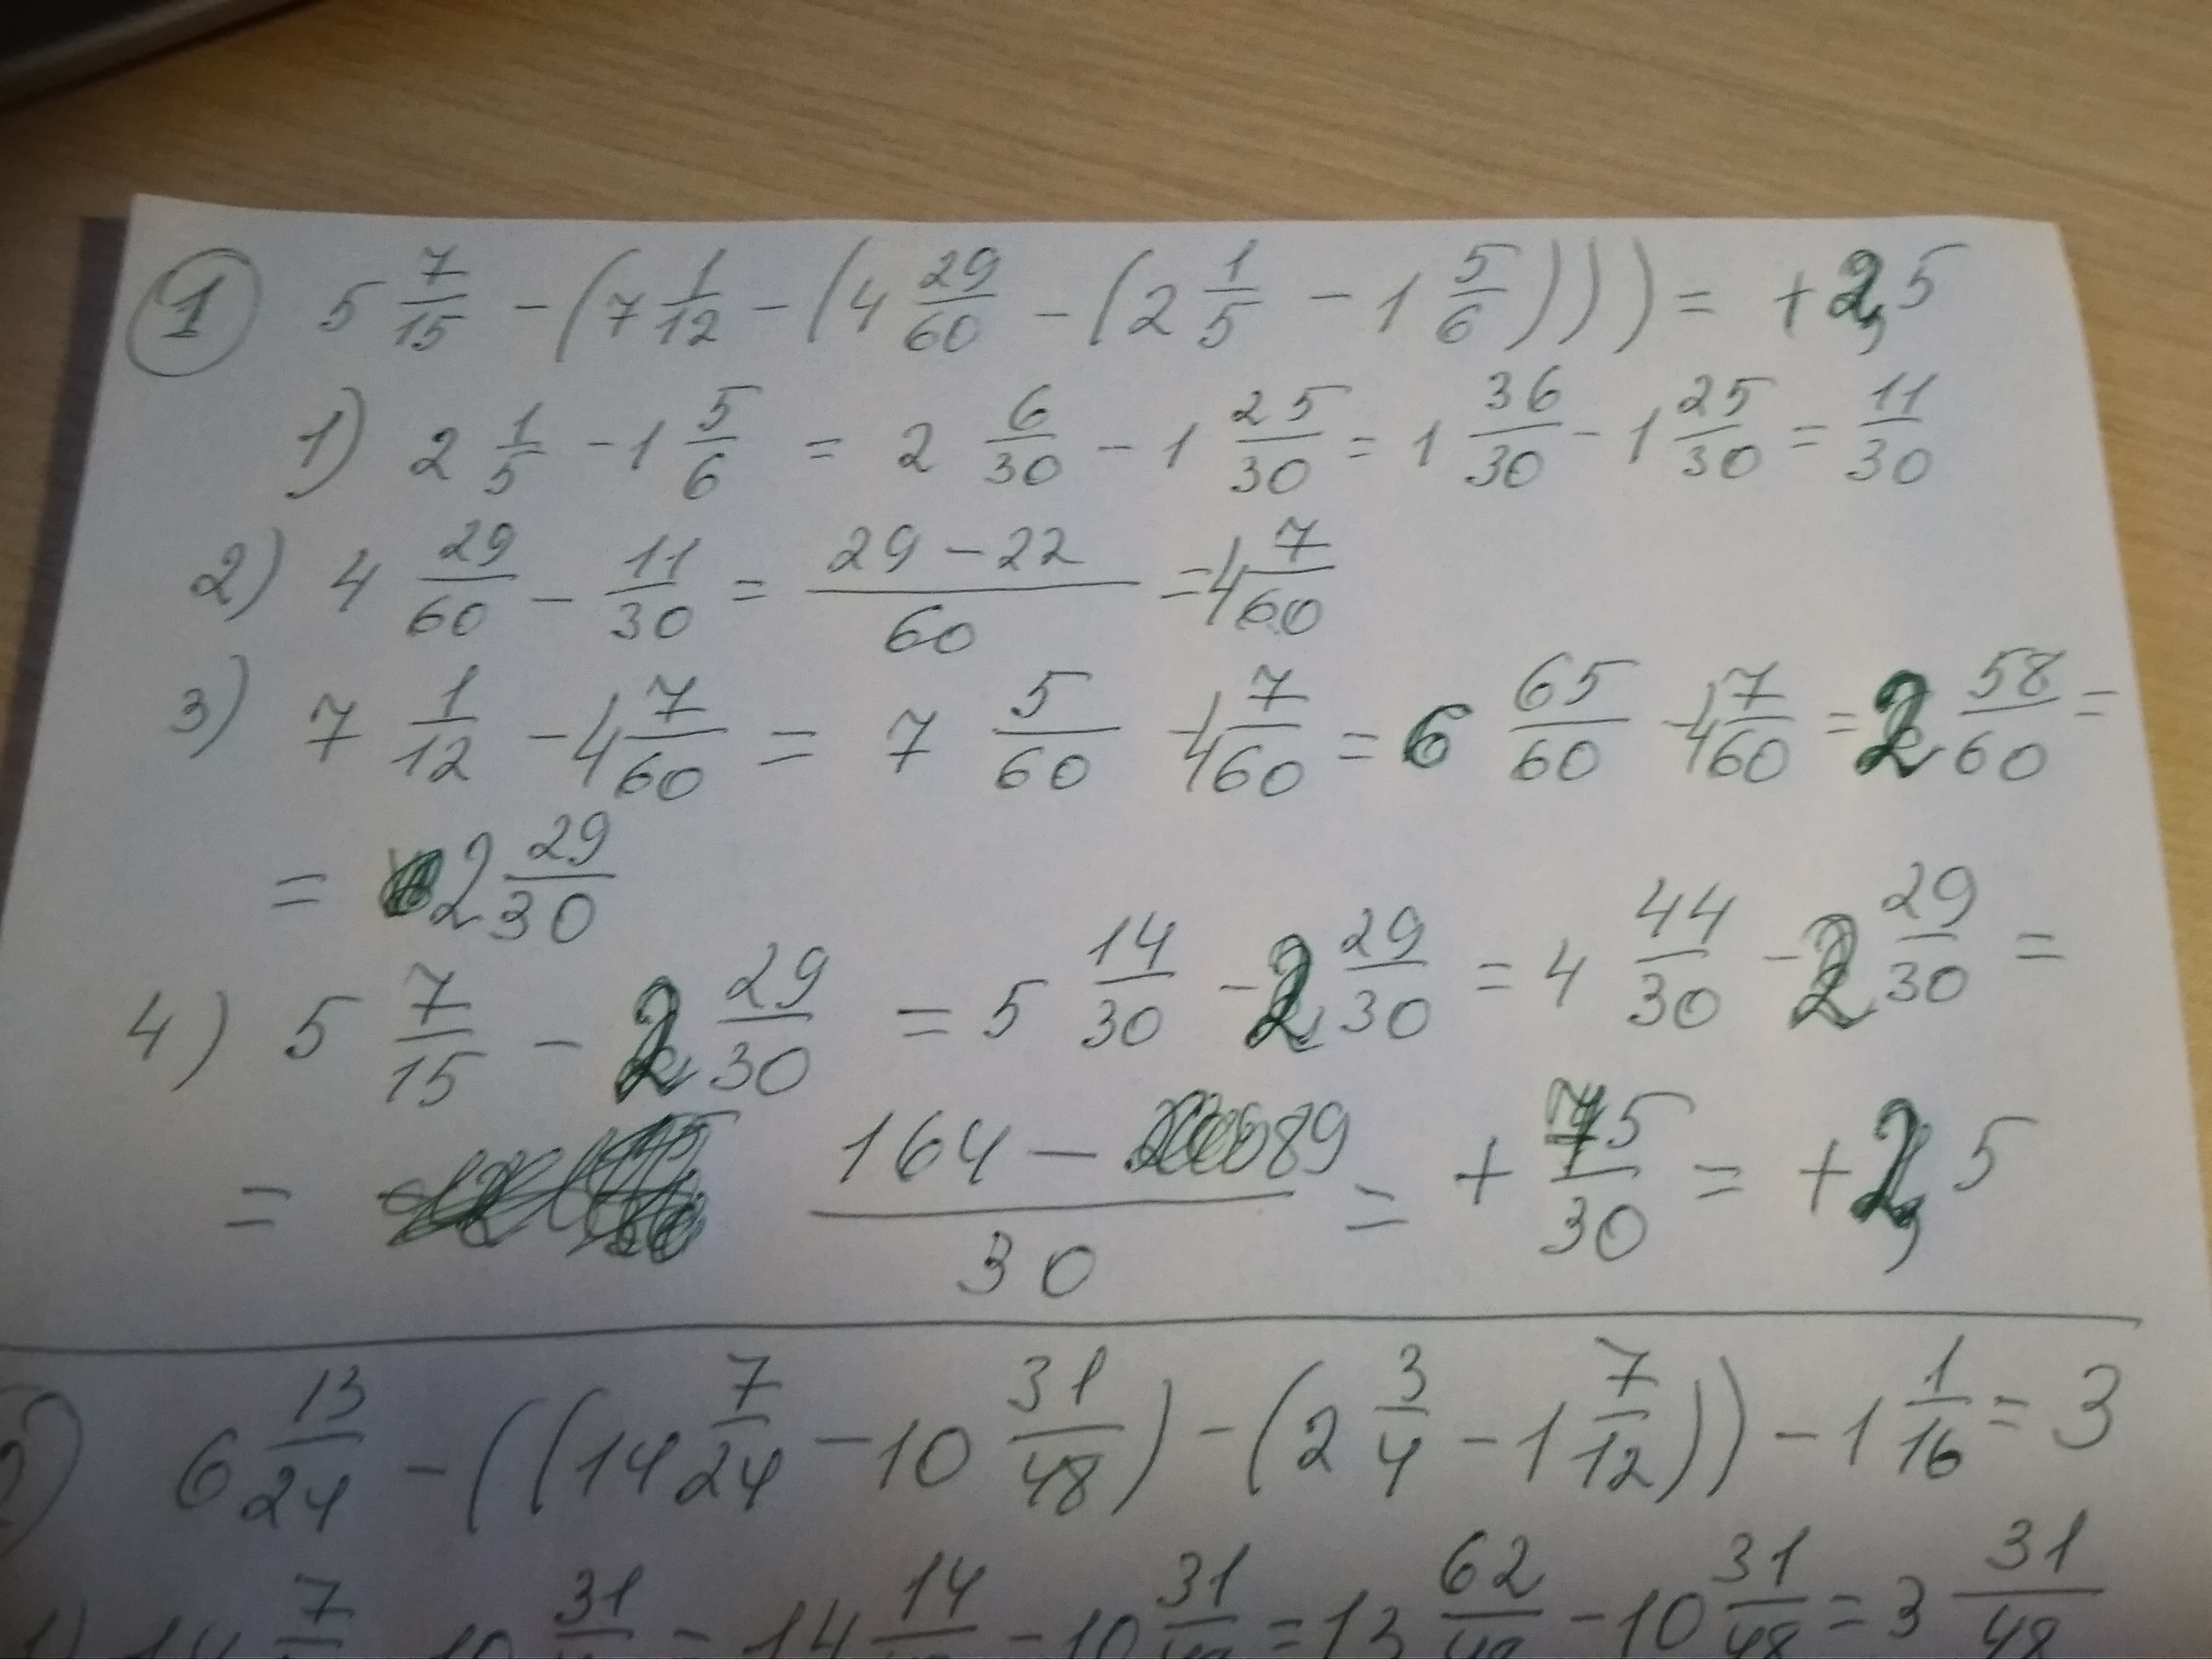 1 5 7/15 - (7 1/12 - (4 29/60 - (2 1/5 - 1 5/6))) = +2,5
1) 2 1/5 - 1 5/6 = 2 6/30 - 1 25/30 = 1 36/30 - 1 25/30 = 11/30
2) 4 29/60 - 11/30 = (29 - 22)/60 = 4 7/60
3) 7 1/12 - 4 7/60 = 7 5/60 - 4 7/60 = 6 65/60 - 4 7/60 = 2 58/60 =
= 2 29/30
4) 5 7/15 - 2 29/30 = 5 14/30 - 2 29/30 = 4 44/30 - 2 29/30 =
= (164 - 89)/30 = + 75/30 = +2,5
2) 6 13/24 - ((14 7/24 - 10 31/48) - (2 3/4 - 1 7/12)) - 1 1/16 = 3
1) 14 7/ 10 31/ = 14 14/ - 10 31/48 = 13 62/48 - 10 31/48 = 3 31/48